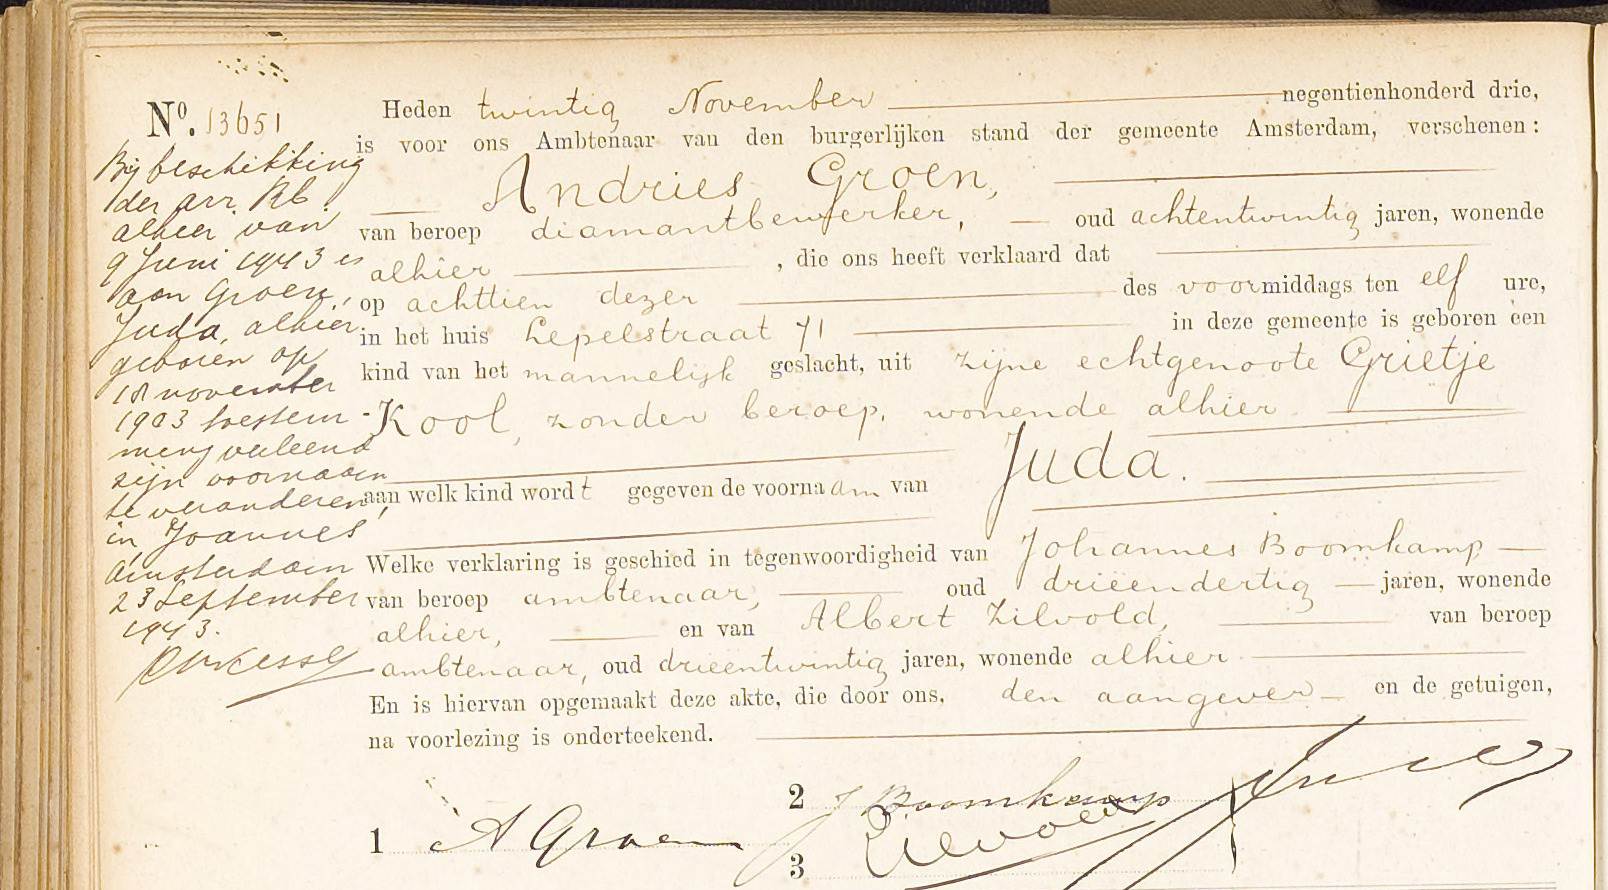 No. 13651
Heden twintig November negentienhonderd drie,
is voor ons Ambtenaar van den burgerlijken stand der gemeente Amsterdam, verschenen:
Andries Groen,
van beroep diamantbewerker, oud achtentwintig jaren, wonende
alhier , die ons heeft verklaard dat
op achttien dezer des voormiddags ten elf ure,
in het huis Lepelstraat 71 in deze gemeente is geboren een
kind van het mannelijk geslacht, uit zijne echtgenoote Grietje
Kool, zonder beroep, wonende alhier
Juda.
aan welk kind wordt gegeven de voornaam van
Welke verklaring is geschied in tegenwoordigheid van Johannes Boomkamp
van beroep ambtenaar, oud drieendertig jaren, wonende
alhier, en van Albert Zilvold, van beroep
ambtenaar, oud drieentwintig jaren, wonende alhier
En is hiervan opgemaakt deze akte, die door ons, den aangever en de getuigen,
na voorlezing is onderteekend.
Bij beschikking
der arr. Rb.
alhier van
9 Juni 1943 is
aan Groen,
Juda, alhier
geboren op
18 november
1903 toestem-
ming verleend
zijn voornaam
te veranderen
in Joannes
Amsterdam
23 September
1943.
1 A Groen
2 J Boomkamp
3 Zilvold